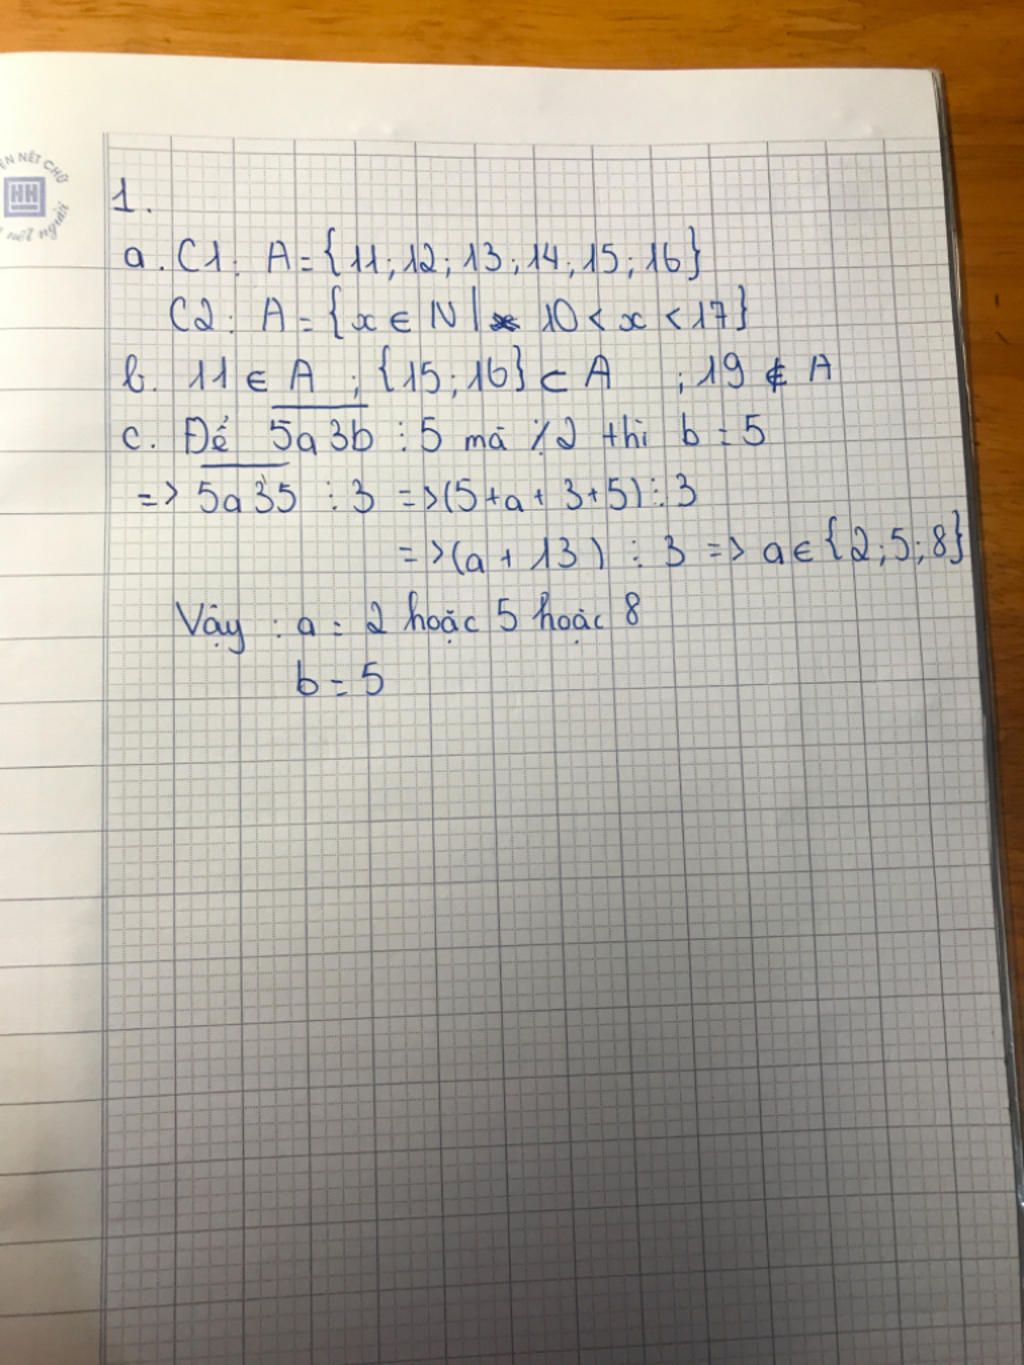 ÈN NÉT CHỮ
HH
nết người
1.
a. C1: A = {11; 12; 13; 14; 15; 16}
C2: A = {x ∈ N | 10 < x < 17}
b. 11 ∈ A ; {15; 16} ⊂ A ; 19 ∉ A
c. Để 5a3b ⋮ 5 mà ⋮̸ 2 thì b = 5
=> 5a35 ⋮ 3 => (5 + a + 3 + 5) ⋮ 3
=> (a + 13) ⋮ 3 => a ∈ {2; 5; 8}
Vậy : a = 2 hoặc 5 hoặc 8
b = 5